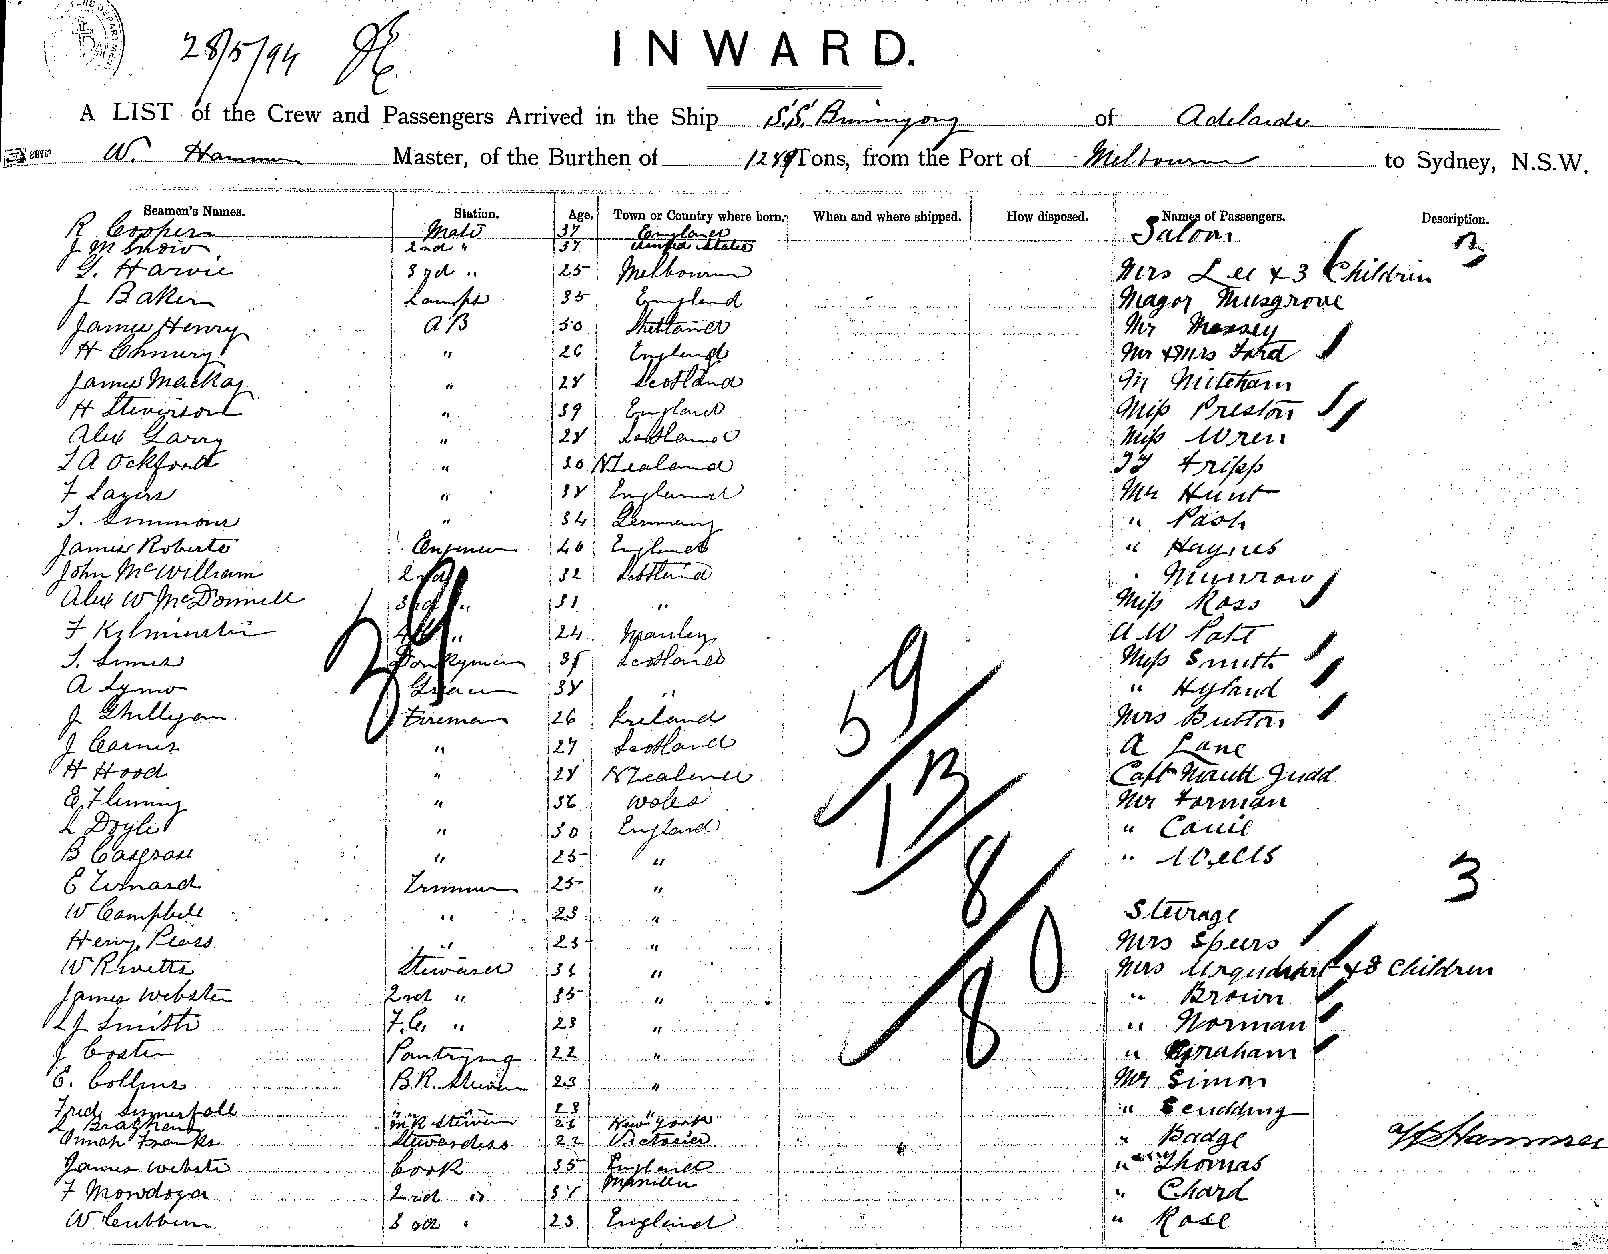 28/5/94
INWARD.
A LIST of the Crew and Passengers Arrived in the Ship S.S. Buninyong of Adelaide
W. Hammer Master, of the Burthen of Tons, from the Port of Melbourne to Sydney, N.S.W.
Seamen's Names. Station. Age. Town or Country where born. When and where shipped. How disposed. Names of Passengers. Description.
R Cooper Mate 37 England Saloon
J M Snow 2nd " 37 United States 3
G. Harvie 3rd " 25 Melbourne Mrs Lee & 3 Children
J Baker Lamps 35 England Magor Musgrove
James Henry AB 50 Shetland Mr Massey
H " 26 England Mr & Mrs Ford
James Mackay " 28 Scotland Mitcham
H Stevenson " 39 England Miss Preston
Alex Garry " 28 Scotland Miss Wren
Ockford " 30 N Zealand Tripp
F Sayers " 38 England Mr Hunt
Simmons " 34 Germany " Pash
James Roberts Engineer 40 England " Haynes
John McWilliam 2nd 32 Scotland " Munrow
Alex W McDonnell 3rd " 31 " Miss Ross
F Kilminster " 24 Manley A W Patt
Donkeyman Scotland Miss Smith
29
A Greaser 38 " " Hyland
J Fireman 26 Ireland Mrs Button
59
J Carnes " 27 Scotland A Lane
H Hood " 28 N Zealand Capt Judd
E Fleming " 36 Wales Mr Forman
13
L Doyle " 30 England "
B " 25 " " Wells
E Trimmer 25 " 3
8
W Campbell " 23 " Steerage
Henry " 23 " Mrs Speers
W Rivetts Steward 36 " Mrs Urquhart & 3 Children
80
James Webster 2nd " 35 " " Brown
L J Smith F.C. " 23 " " Norman
J Coster Pantryman 22 " " Graham
E. Collins B.R. Steward 23 " Mr Simon
Fred Sumerfall " 23 " " Scudding
Steward 26 New York
Franks Stewardess 22 Victoria " Badge W Hammer
James Webster Cook 35 England " Thomas
F Mowdoya 2nd " 38 Manilla " Chard
W Cubben 3rd " 23 England " Rose